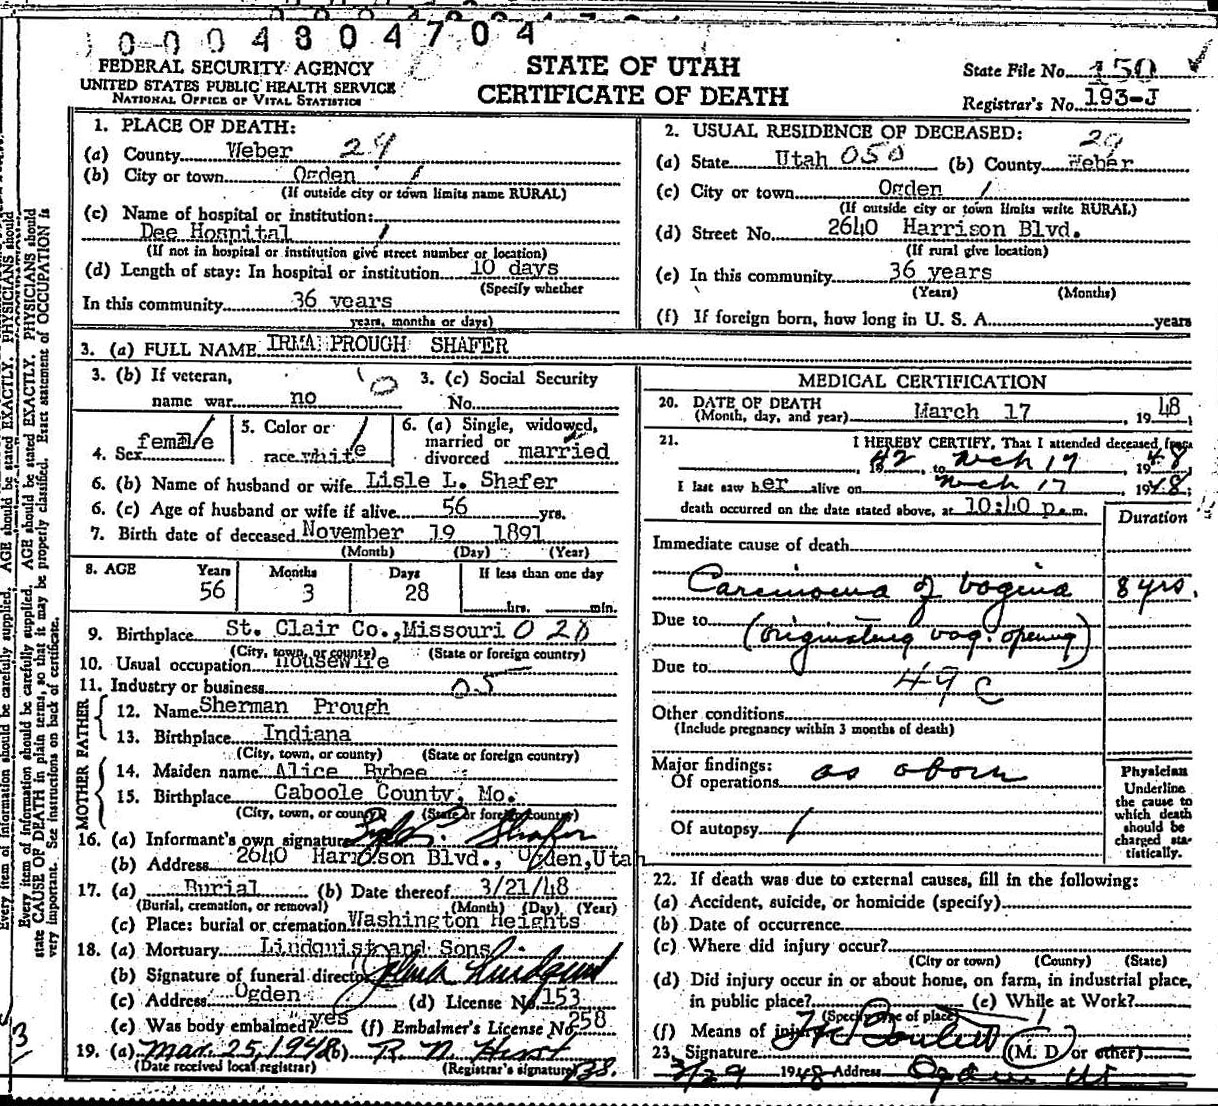 0-0 0 4 8 0 4 7 0 4
FEDERAL SECURITY AGENCY
UNITED STATES PUBLIC HEALTH SERVICE
NATIONAL OFFICE OF VITAL STATISTICS
STATE OF UTAH
CERTIFICATE OF DEATH
State File No. 150
Registrar's No. 193-J
1. PLACE OF DEATH:
(a) County Weber 29
(b) City or town Ogden 1
(If outside city or town limits name RURAL)
(c) Name of hospital or institution:
Dee Hospital 1
(If not in hospital or institution give street number or location)
(d) Length of stay: In hospital or institution 10 days
(Specify whether
In this community 36 years
years, months or days)
2. USUAL RESIDENCE OF DECEASED: 29
(a) State Utah 050 (b) County Weber
(c) City or town Ogden 1
(If outside city or town limits write RURAL)
(d) Street No. 2640 Harrison Blvd.
(If rural give location)
(e) In this community 36 years
(Years) (Months)
(f) If foreign born, how long in U. S. A. years
3. (a) FULL NAME IRMA PROUGH SHAFER
3. (b) If veteran,
name war no
3. (c) Social Security
No.
4. Sex female
5. Color or
race white
6. (a) Single, widowed,
married or
divorced married
6. (b) Name of husband or wife Lisle L. Shafer
6. (c) Age of husband or wife if alive 56 yrs.
7. Birth date of deceased November 19 1891
(Month) (Day) (Year)
8. AGE Years Months Days If less than one day
56 3 28 hrs. min.
9. Birthplace St. Clair Co., Missouri 0 28
(City, town, or county) (State or foreign country)
10. Usual occupation housewife
11. Industry or business 05
FATHER
12. Name Sherman Prough
13. Birthplace Indiana
(City, town, or county) (State or foreign country)
MOTHER
14. Maiden name Alice Bybee
15. Birthplace Caboole County, Mo.
(City, town, or county) (State or foreign country)
16. (a) Informant's own signature Shafer
(b) Address 2640 Harrison Blvd., Ogden, Utah
17. (a) Burial (b) Date thereof 3/21/48
(Burial, cremation, or removal) (Month) (Day) (Year)
(c) Place: burial or cremation Washington Heights
18. (a) Mortuary Lindquist and Sons
(b) Signature of funeral director Lindquist
(c) Address Ogden (d) License No. 153
(e) Was body embalmed? yes (f) Embalmer's License No. 258
19. (a) Mar. 25, 1948 (b) R. N. Hirst
(Date received local registrar) (Registrar's signature)
MEDICAL CERTIFICATION
20. DATE OF DEATH
(Month, day, and year) March 17 1948
21. I HEREBY CERTIFY, That I attended deceased from
42 to Mch 17 1948
I last saw her alive on Mch 17 1948;
death occurred on the date stated above, at 10:40 p.m.
Duration
Immediate cause of death
Carcinoma of vagina 8 yrs.
Due to (originating vag. opening)
Due to 49 c
Other conditions
(Include pregnancy within 3 months of death)
Major findings:
Of operations as above
Of autopsy
Physician
Underline
the cause to
which death
should be
charged sta-
tistically.
22. If death was due to external causes, fill in the following:
(a) Accident, suicide, or homicide (specify)
(b) Date of occurrence
(c) Where did injury occur?
(City or town) (County) (State)
(d) Did injury occur in or about home, on farm, in industrial place,
in public place? (e) While at Work?
(Specify type of place)
(f) Means of injury
23. Signature (M. D. or other)
3/29 1948 Address Ogden Ut
Every item of information should be carefully supplied. AGE should be stated EXACTLY. PHYSICIANS should
state CAUSE OF DEATH in plain terms, so that it may be properly classified. Exact statement of OCCUPATION is
very important. See instructions on back of certificate.